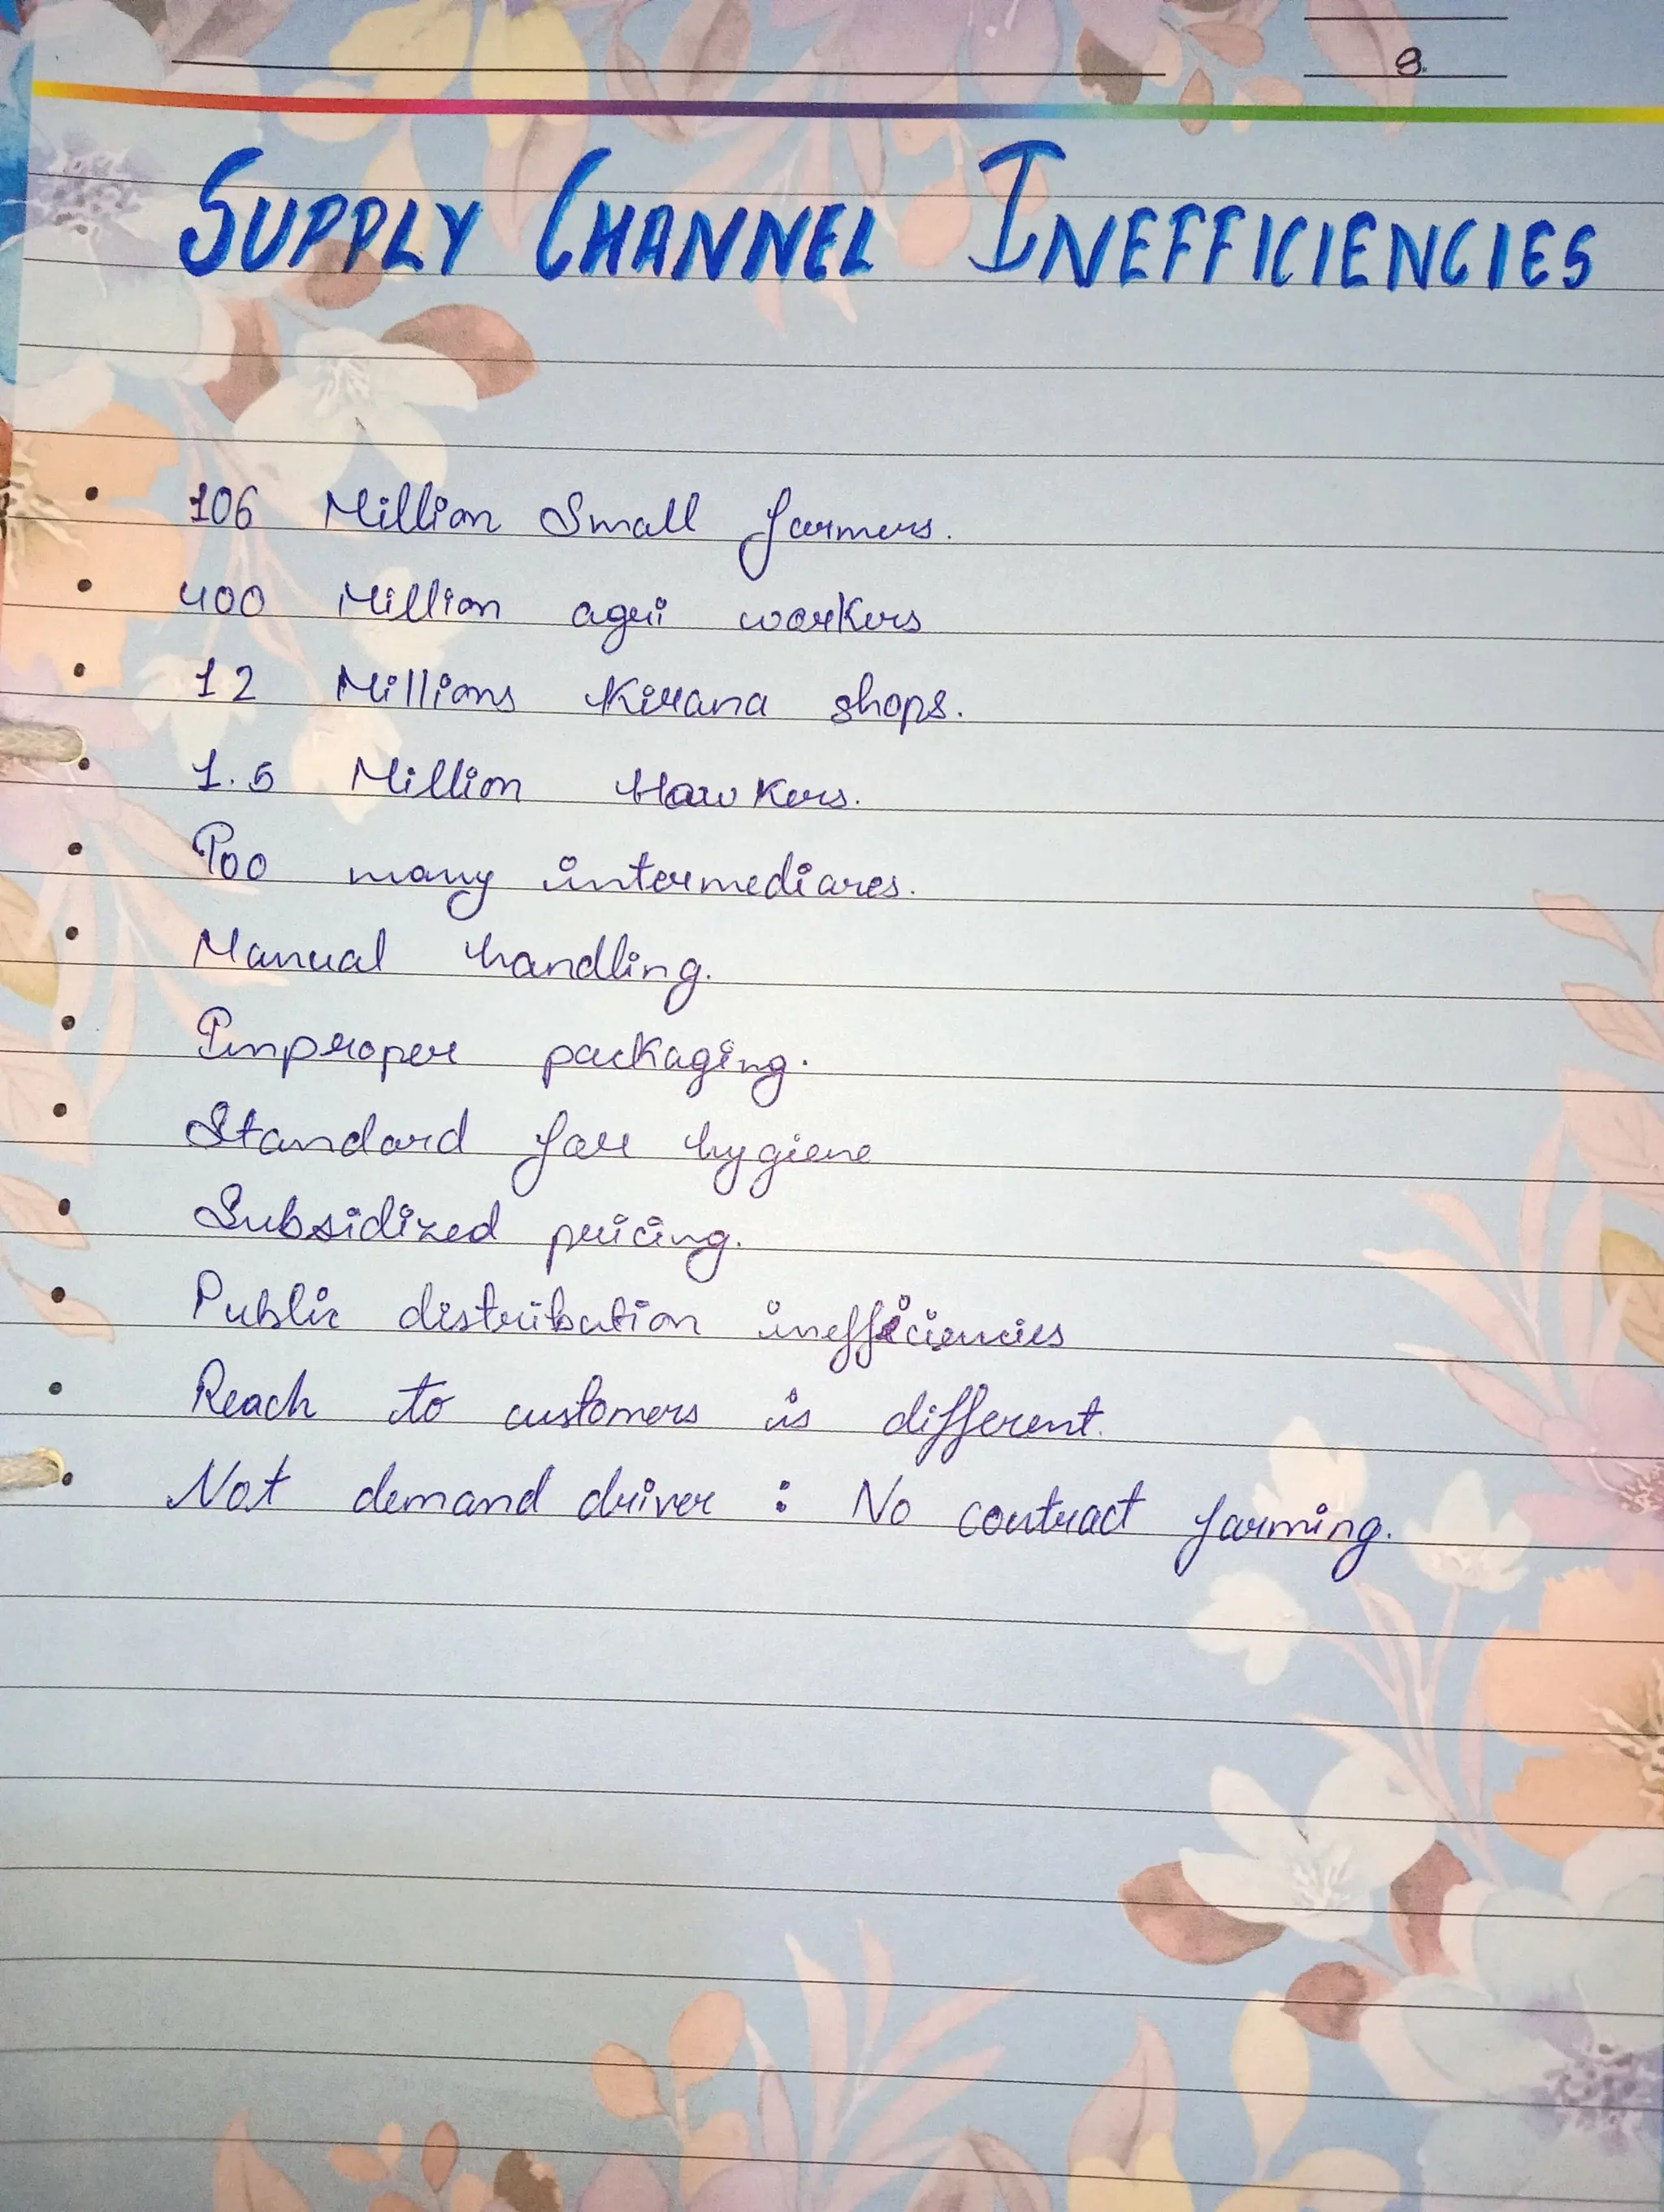 8.
SUPPLY CHANNEL INEFFICIENCIES
• 106 Million Small farmers.
• 400 Million agri workers
• 12 Millions Kirana shops.
• 1.5 Million Hawkers.
• Too many intermediares.
• Manual handling.
• Improper packaging.
• Standard for hygiene
• Subsidized pricing.
• Public distribution inefficiencies
• Reach to customers is different.
• Not demand driver : No contract farming.